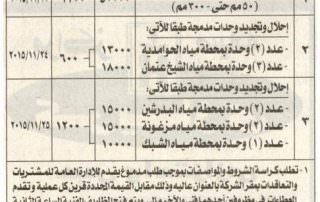 (٥٠ مم حتى ٣٠٠ مم)
٢
إحلال وتجديد وحدات مدمجة طبقا للآتى:
- عدد (٢) وحدة بمحطة مياه الحوامدية
١٣٠٠٠
- عدد (٣) وحدة بمحطة مياه الشيخ عثمان
١٨٠٠٠
٦٠٠
٢٠١٥/١١/٢٤
٣
إحلال وتجديد وحدات مدمجة طبقا للآتى:
- عدد (٢) وحدة بمحطة مياه البدرشين
١٥٠٠٠
- عدد (٢) وحدة بمحطة مياه مزغونة
١٥٠٠٠
- عدد (١) وحدة بمحطة مياه الشبك
١٠٠٠٠
١٢٠٠
٢٠١٥/١١/٢٥
١- تطلب كراسة الشروط والمواصفات بموجب طلب مدموغ يقدم للإدارة العامة للمشتريات
والتعاقدات بمقر الشركة بالعنوان عاليه وذلك مقابل القيمة المحددة قرين كل عملية وتقدم